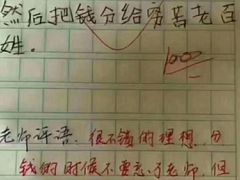 然后把钱分给穷苦老百
姓.
100
老师评语,很不错的理想,分
钱的时候不要忘了老师,但